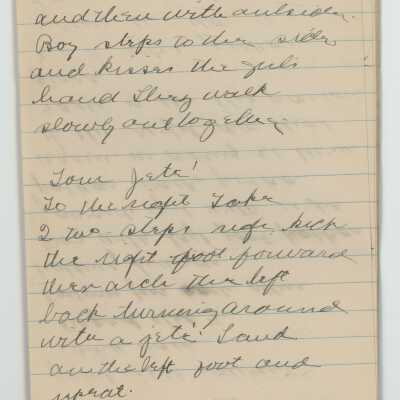 and then with outside.
Boy steps to the side
and kisses the girls
hand They walk
slowly out together
Tour Jeté!
To the right Take
2 two steps right kick
the right foot forward
then arch the left
back turning around
with a jeté! Land
on the left foot and
repeat.